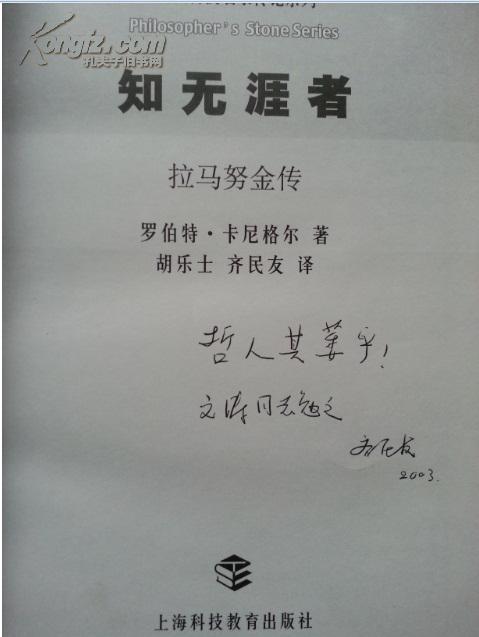 Philosopher's Stone Series
Kongfz.com
孔夫子旧书网
知无涯者
拉马努金传
罗伯特·卡尼格尔 著
胡乐士 齐民友 译
哲人其萎乎!
文涛同志勉之
齐民友
2003.
上海科技教育出版社